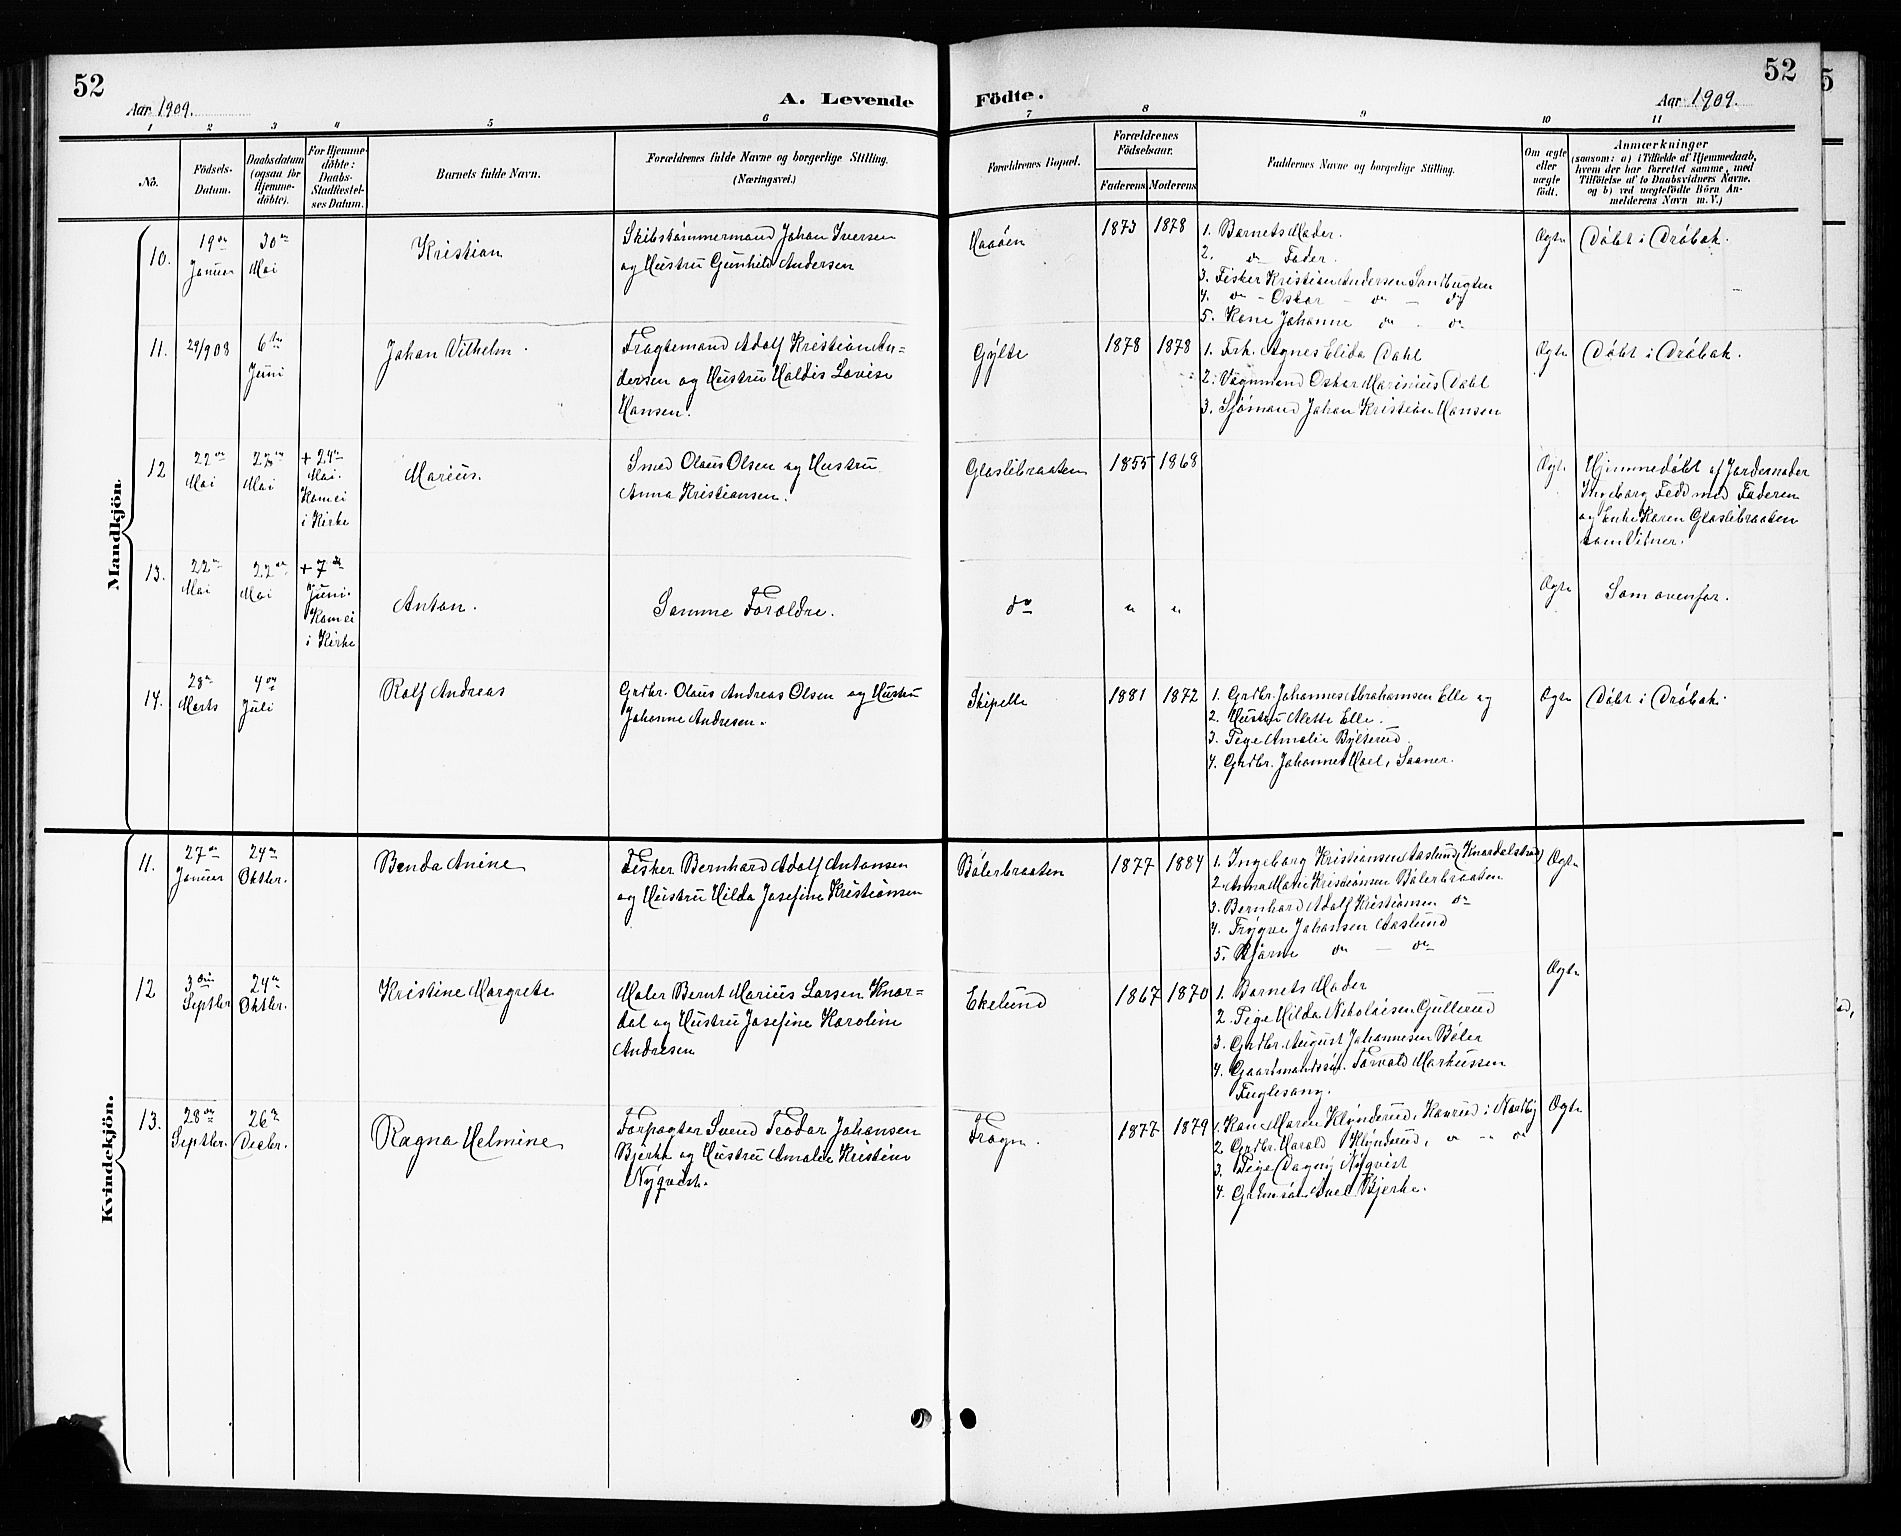 52
Aar 1909.
A. Levende
Födte.
52
Aar 1909.
1 2 3 4 5 6 7 8 9 10 11
No.
Födsels-
Datum.
Daabsdatum
(ogsaa for
Hjemme-
döbte).
For Hjemme-
döbte:
Daabs-
Stadfæstel-
ses Datum.
Barnets fulde Navn.
Forældrenes fulde Navne og borgerlige Stilling.
(Næringsvei.)
Forældrenes Bopæl.
Forældrenes
Födselsaar.
Faderens Moderens
Faddernes Navne og borgerlige Stilling.
Om ægte
eller
uægte
födt.
Anmærkninger
(saasom: a) i Tilfælde af Hjemmedaab,
hvem der har forrettet samme, med
Tilföielse af to Daabsvidners Navne.
og b) ved uægtefödte Börn An-
melderens Navn m. V.)
Mandkjön.
10.
19de
Januar
30te
Mai
Kristian
Skibstømmermand Johan Iversen
og Hustru Gunhild Andersen
Haaöen
1873 1878
1. Barnets Moder.
2. do Fader.
3. Fisker Kristian Andersen Sandbugten
4. do - Oskar - do - do
5. Kone Johanne do - do
Ægte
Döbt i Dröbak.
11.
29/9 08
6te
Juni
Johan Vilhelm.
Fragtemand Adolf Kristian An=
dersen og Hustru Haldis Lovise
Hansen.
Gylte
1878 1878
1. Frk. Agnes Elida Dahl
2. Vognmand Oskar Marinius Dahl
3. Sjömand Johan Kristian Hansen
Ægte
Döbt i Dröbak.
12
22de
Mai
22de
Mai
+ 24de
Mai.
Kom ei
i Kirke
Marius.
Smed Olaus Olsen og Hustru
Anna Kristiansen.
Glaslibraaten
1855 1868
Ægte
Hjemmedöbt af Jordemoder
Ingeborg Fedd med Faderen
og Enke Karen Glaslibraaten
som Vitner.
13.
22de
Mai
22de
Mai
+ 7de
Juni.
Kom ei
i Kirke
Anton.
Samme Forældre.
do
" "
Ægte
Som ovenfor.
14.
28de
Marts
4de
Juli
Rolf Andreas
Grdbr. Olaus Andreas Olsen og Hustru
Johanne Andresen.
Skipelle
1881 1872
1. Grdbr. Johannes Abrahamsen Elle og
2. Hustru Alette Elle.
3. Pige Amalie Bylterud.
4. Grdbr. Johannes Hoel, Saaner.
Ægte
Döbt i Dröbak.
Kvindekjön.
11.
27de
Januar
24de
Oktbr.
Benda Anine
Fisker Bernhard Adolf Antonsen
og Hustru Hilda Josefine Kristiansen
Bölerbraaten
1877 1884
1. Ingeborg Kristiansen Aaslund (Knardalstrand)
2. Anna Marie Kristiansen Bölerbraaten
3. Bernhard Adolf Kristiansen do
4. Trygve Johansen Aaslund
5. Bjarne do - do
Ægte
12
3die
Septbr
24de
Oktbr.
Kristine Margrete
Maler Bernt Marius Larsen Knar=
dal og Hustru Josefine Karoline
Andresen
Ekelund
1867 1870
1. Barnets Moder
2. Pige Hilda Nikolaisen Gulterud
3. Grdbr. August Johannesen Böler
4. Gaardmandssön. Torvald Markussen
Fuglesang.
Ægte
13.
28de
Septbr.
26de
Decbr.
Ragna Helmine
Forpagter Svend Teodor Johansen
Bjerke og Hustru Amalie Kristine
Nyqvist.
Frogn.
1877 1879
1. Kone Maren Klynderud, i Nordby
2. Grdbr. Harald Klynderud, do - do
3. Pige Dagny Nyqvist
4. Axel Bjerke.
Ægte